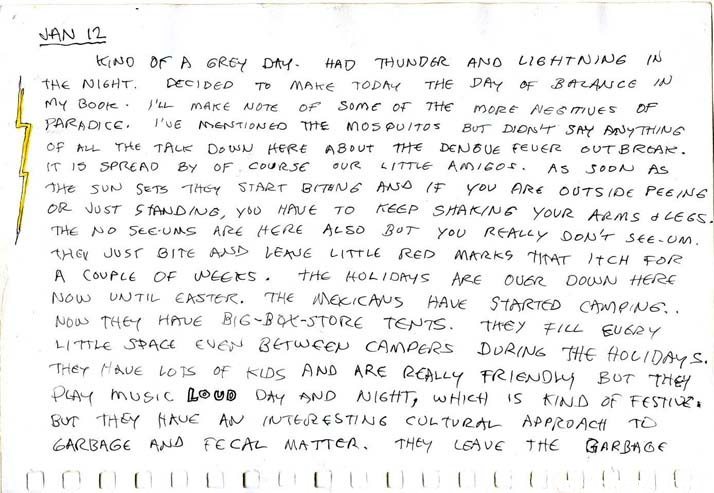 JAN 12
KIND OF A GREY DAY. HAD THUNDER AND LIGHTNING IN
THE NIGHT. DECIDED TO MAKE TODAY THE DAY OF BALANCE IN
MY BOOK. I'LL MAKE NOTE OF SOME OF THE MORE NEGITIVES OF
PARADICE. I'VE MENTIONED THE MOSQUITOS BUT DIDN'T SAY ANYTHING
OF ALL THE TALK DOWN HERE ABOUT THE DENGUE FEVER OUTBREAK.
IT IS SPREAD BY OF COURSE OUR LITTLE AMIGOS. AS SOON AS
THE SUN SETS THEY START BITENG AND IF YOU ARE OUTSIDE PEEING
OR JUST STANDING, YOU HAVE TO KEEP SHAKING YOUR ARMS & LEGS.
THE NO SEE-UMS ARE HERE ALSO BUT YOU REALLY DON'T SEE-UM.
THEY JUST BITE AND LEAVE LITTLE RED MARKS THAT ITCH FOR
A COUPLE OF WEEKS. THE HOLIDAYS ARE OVER DOWN HERE
NOW UNTIL EASTER. THE MEXICANS HAVE STARTED CAMPING..
NOW THEY HAVE BIG-BOX-STORE TENTS. THEY FILL EVERY
LITTLE SPACE EVEN BETWEEN CAMPERS DURING THE HOLIDAYS.
THEY HAVE LOTS OF KIDS AND ARE REALLY FRIENDLY BUT THEY
PLAY MUSIC LOUD DAY AND NIGHT, WHICH IS KIND OF FESTIVE.
BUT THEY HAVE AN INTERESTING CULTURAL APPROACH TO
GARBAGE AND FECAL MATTER. THEY LEAVE THE GARBAGE